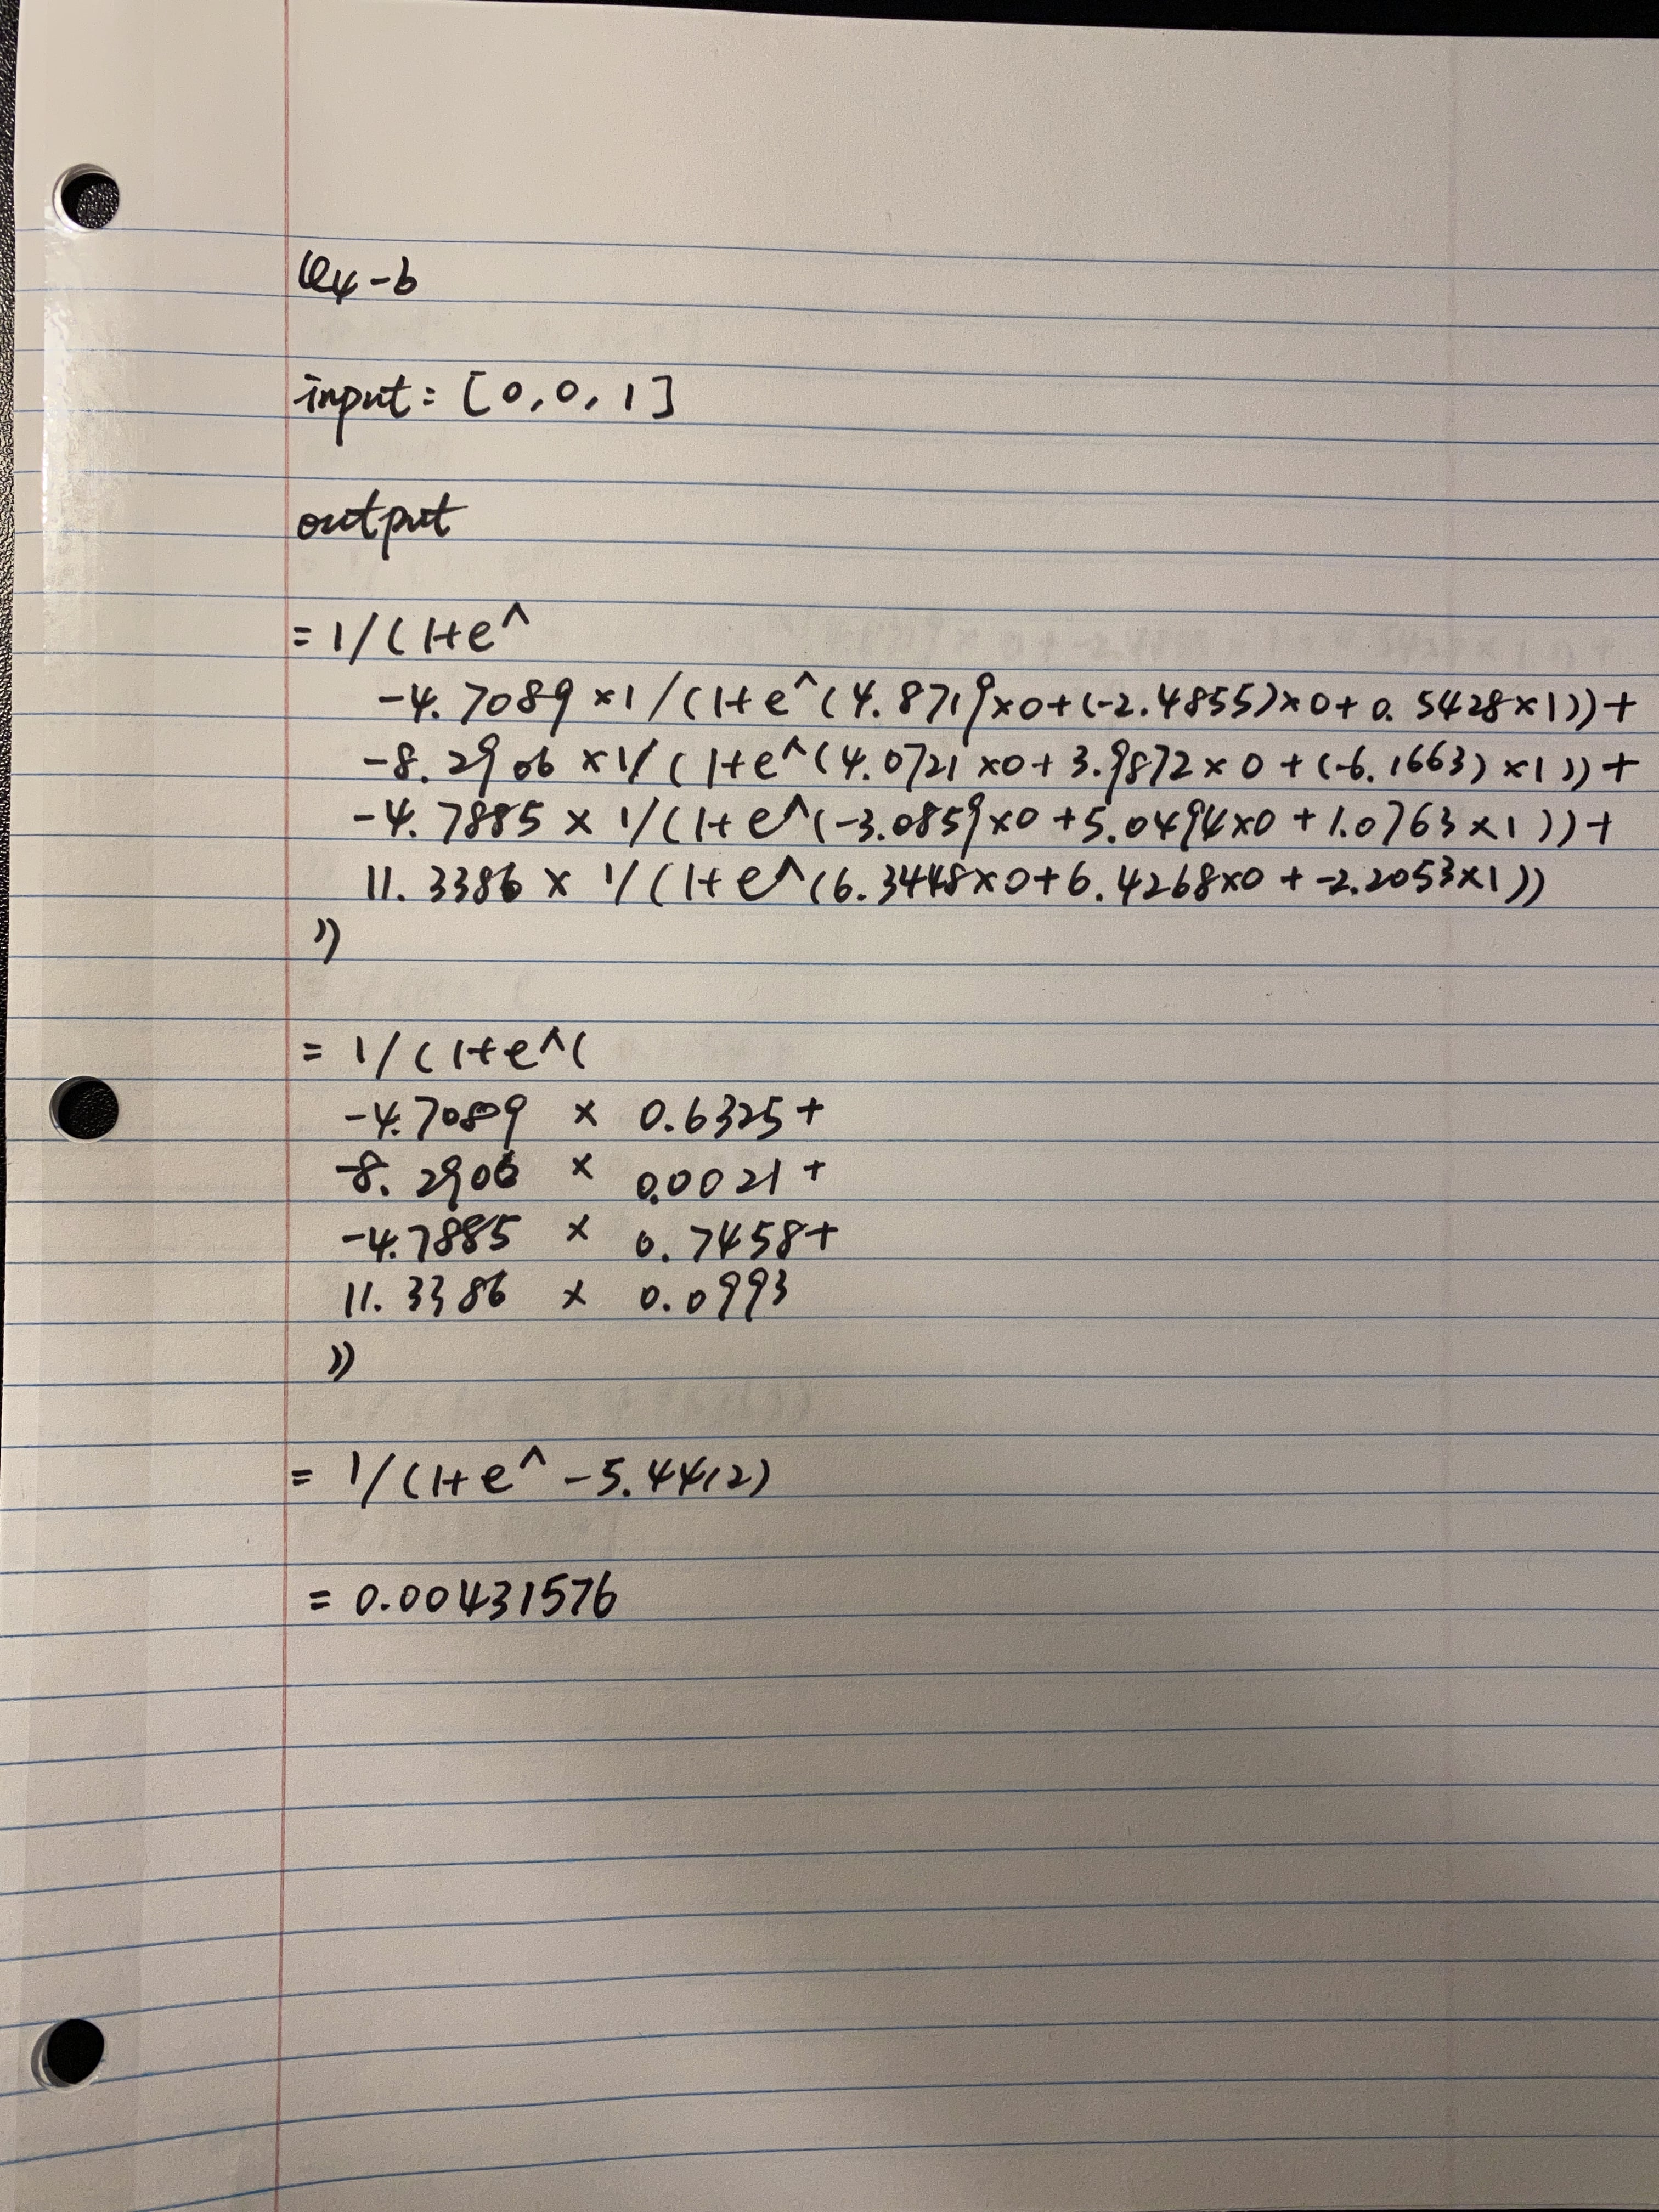 Q4-b
input: [0,0,1]
output
= 1/(1+e^
-4.7089 × 1/(1+e^(4.8719×0+(-2.4855)×0+0.5428×1))+
-8.2906 × 1/(1+e^(4.0721×0+3.9872×0+(-6.1663)×1))+
-4.7885 × 1/(1+e^(-3.0859×0+5.0494×0+1.0763×1))+
11.3386 × 1/(1+e^(6.3448×0+6.4268×0+-2.2053×1))
))
= 1/(1+e^(
-4.7089 × 0.6325+
-8.2906 × 0.0021+
-4.7885 × 0.7458+
11.3386 × 0.0993
))
= 1/(1+e^ -5.4412)
= 0.00431576